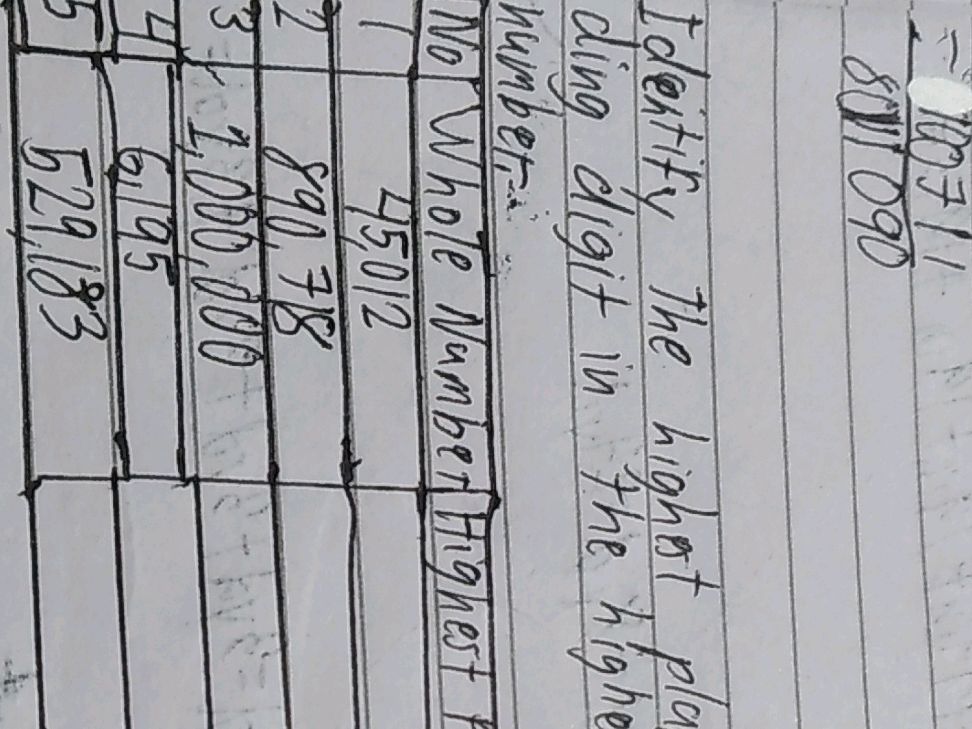 80 090
Identify the highest pla
ding digit in the highe
number.
No Whole Number Highest P
1 45,012
2 890,78
3 1,000,000
4 6,195
5 529,183